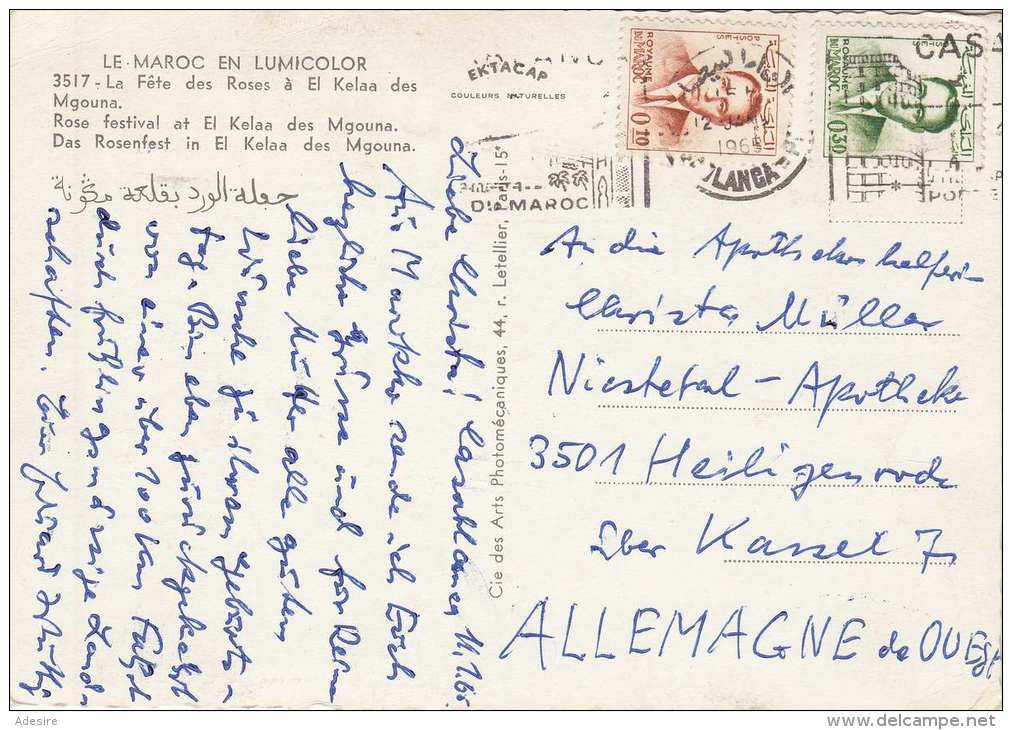 LE MAROC EN LUMICOLOR
3517 - La Fête des Roses à El Kelaa des
Mgouna.
Rose festival at El Kelaa des Mgouna.
Das Rosenfest in El Kelaa des Mgouna.
حفلة الورد بقلعة مكونة
EKTACAP
COULEURS NATURELLES
DU MAROC
POSTES
ROYAUME
DU MAROC
0,10
12
1965
POSTES
ROYAUME
DU MAROC
0,30
CAS
Cie des Arts Photomécaniques, 44, r. Letellier, Paris-15e
Liebe Christa! Casablanca 11.1.65.
Aus Marokko sende ich Euch
herzliche Grüsse und für Deine
liebe Mutter alle guten
Wünsche zu ihrem Geburts-
tag. Bin eben zurückgekehrt
von einer über 700 km Fahrt
durch frühlingsmässige Land-
schaften. Euer
An die Apothekenhelferin
Christa Müller
Niestetal - Apotheke
3501 Heiligenrode
über Kassel 7,
ALLEMAGNE de OUEST
Adesire
www.delcampe.net